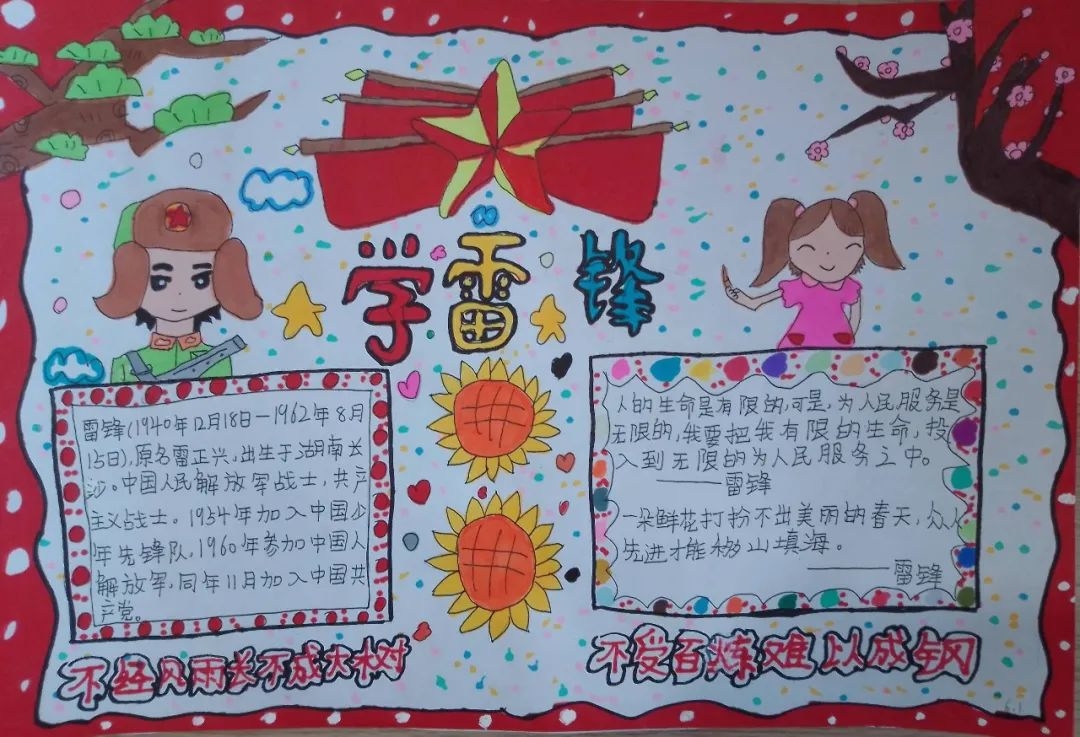 学雷锋
雷锋(1940年12月18日—1962年8月
15日),原名雷正兴,出生于湖南长
沙。中国人民解放军战士,共产
主义战士。1954年加入中国少
年先锋队,1960年参加中国人
解放军,同年11月加入中国共
产党。
人的生命是有限的,可是,为人民服务是
无限的,我要把我有限的生命,投
入到无限的为人民服务之中。
——雷锋
一朵鲜花打扮不出美丽的春天,众人
先进才能移山填海。
——雷锋
不经风雨长不成大树
不受百炼难以成钢
6.1